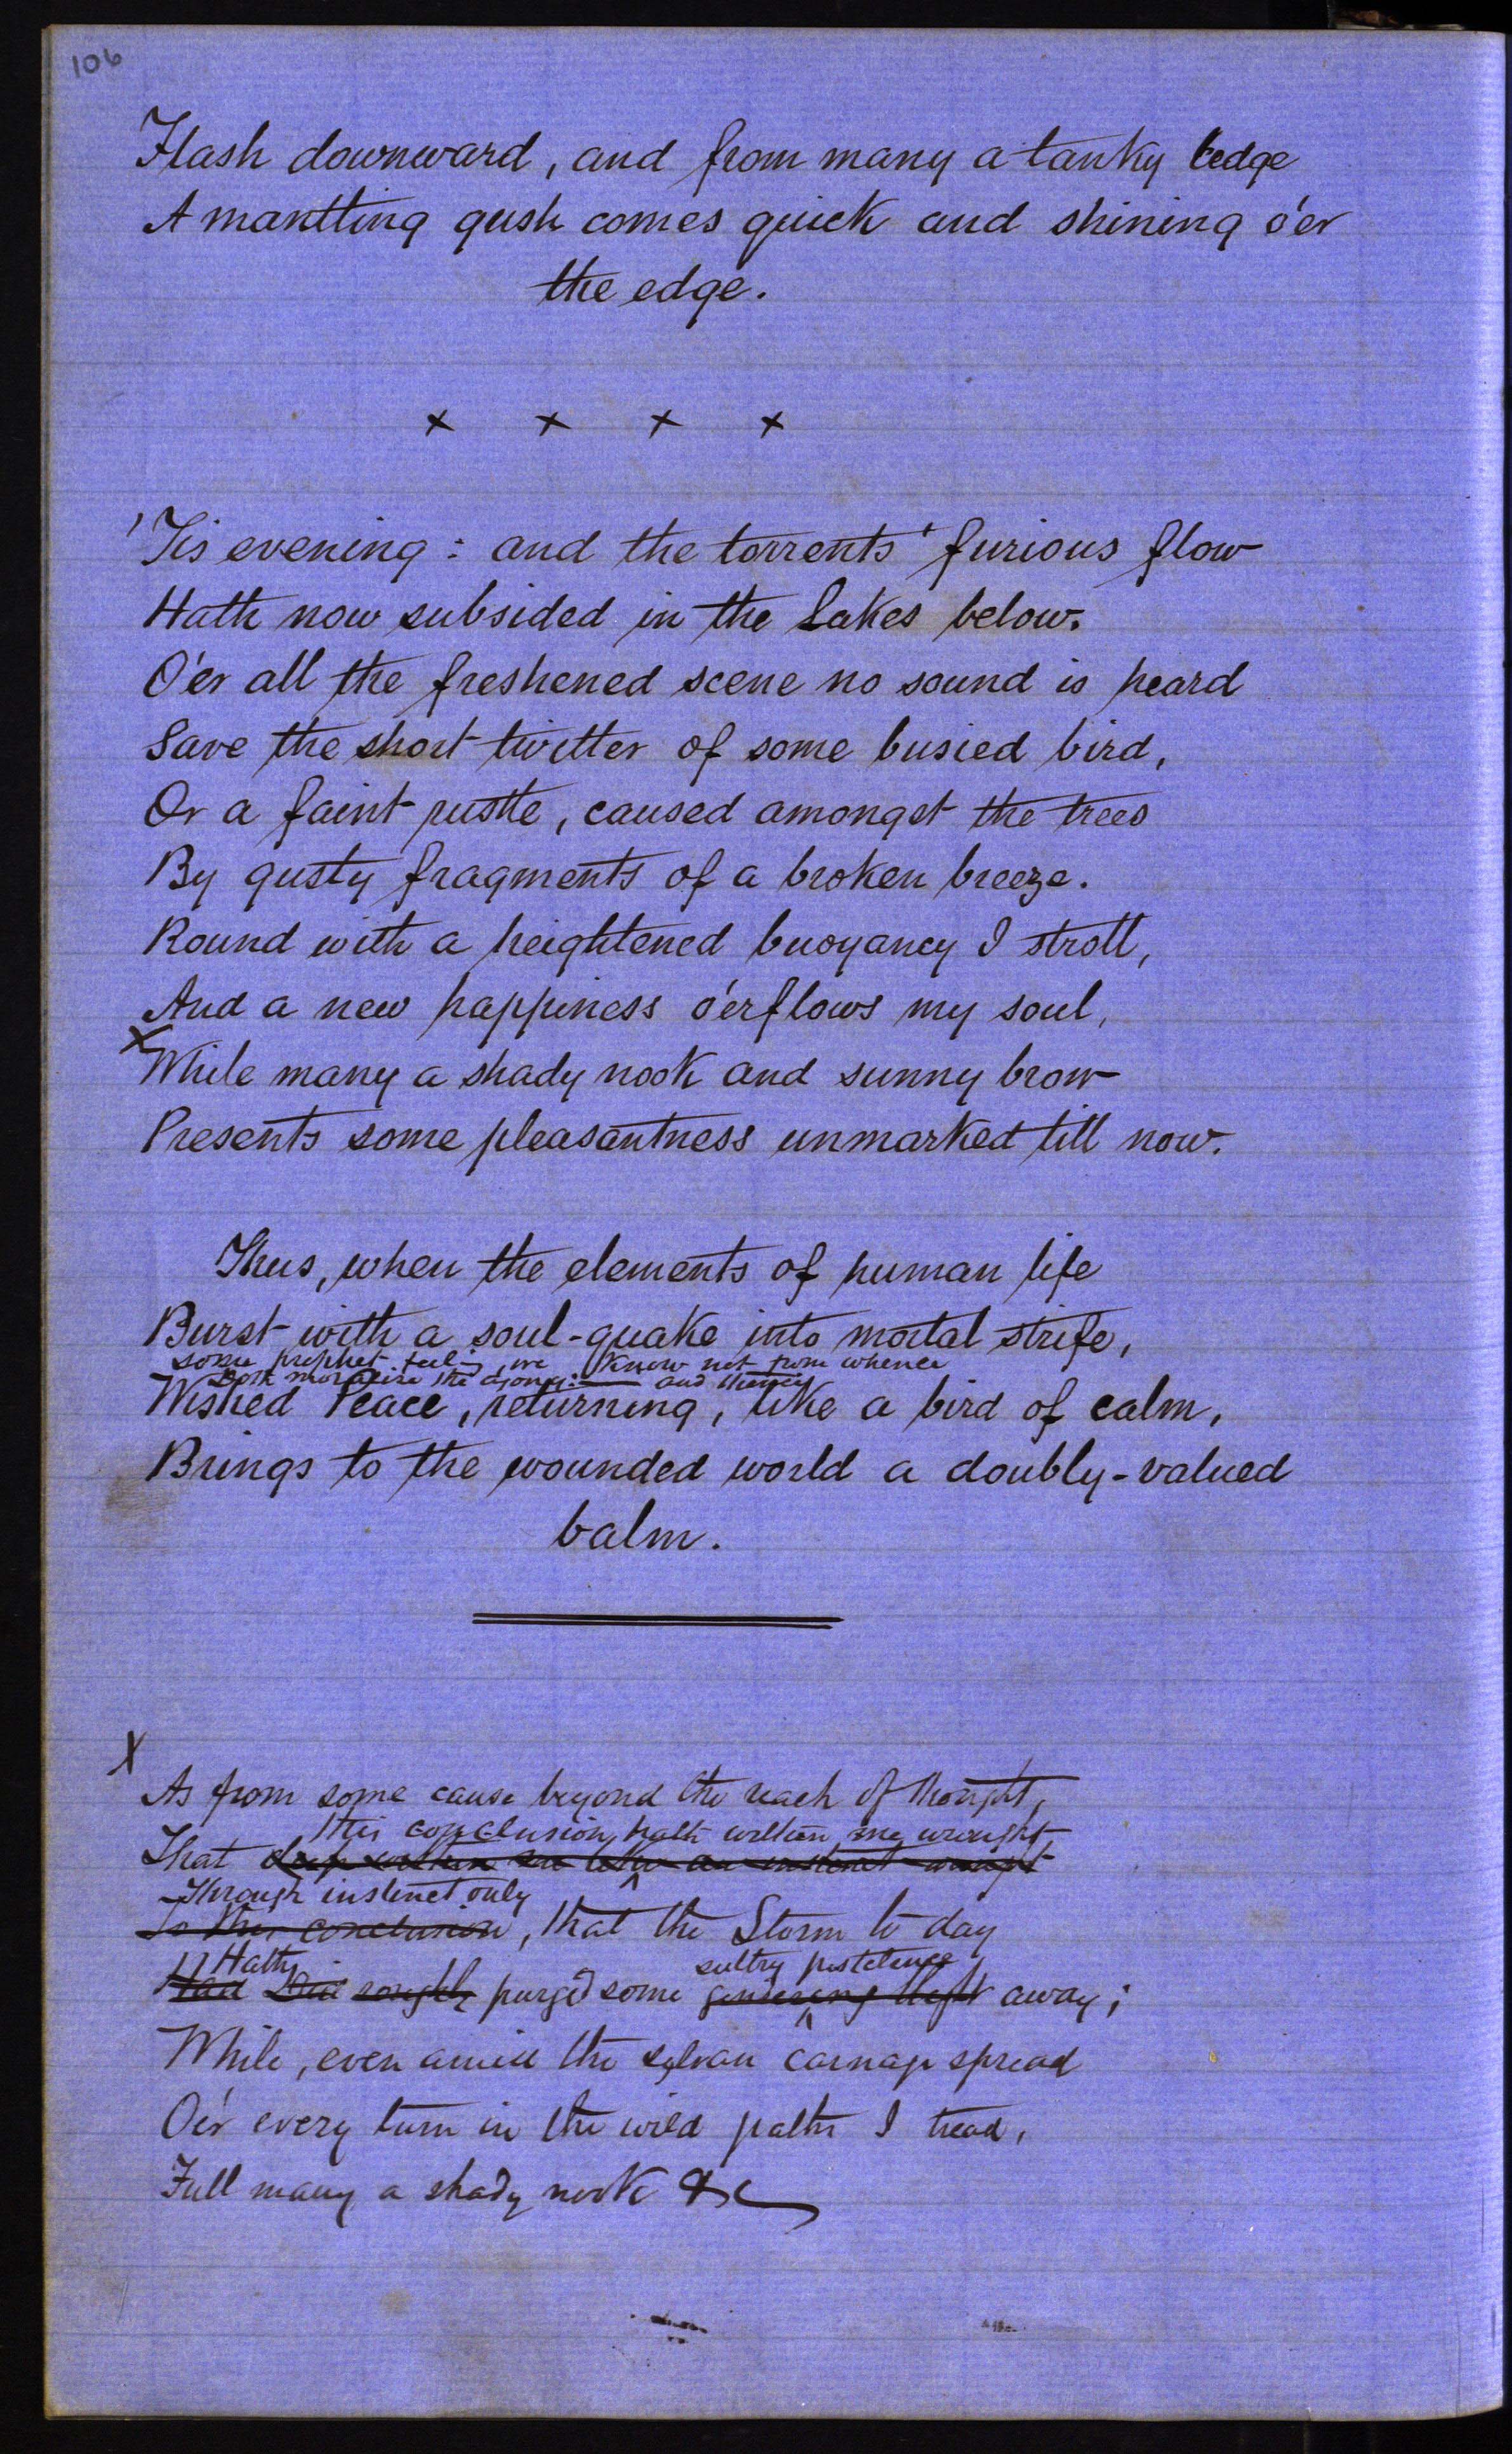 106
Flash downward, and from many a tanky ledge
A mantling gush comes quick and shining o'er
the edge.
× × × ×
'Tis evening: and the torrents' furious flow
Hath now subsided in the Lakes below.
O'er all the freshened scene no sound is heard
Save the short twitter of some busied bird,
Or a faint rustle, caused amongst the trees
By gusty fragments of a broken breeze.
Round with a heightened buoyancy I stroll,
And a new happiness o'erflows my soul,
× While many a shady nook and sunny brow
Presents some pleasantness unmarked till now.
Thus, when the elements of human life
Burst with a soul-quake into mortal strife,
Some prophet feeling, we know not from whence
Doth moralize the agony:— and
Wished Peace, returning, like a bird of calm,
Brings to the wounded world a doubly-valued
balm.
X
As from some cause beyond the reach of thought,
this conclusion, hath within me wrought,
That deep within me like an instinct wrought
Through instinct only
To this conclusion, that the Storm to day
Hath sultry pestilence
Had roughly purg'd some away;
While, even amid the sylvan carnage spread
O'er every turn in the wild paths I tread,
Full many a shady nook &c